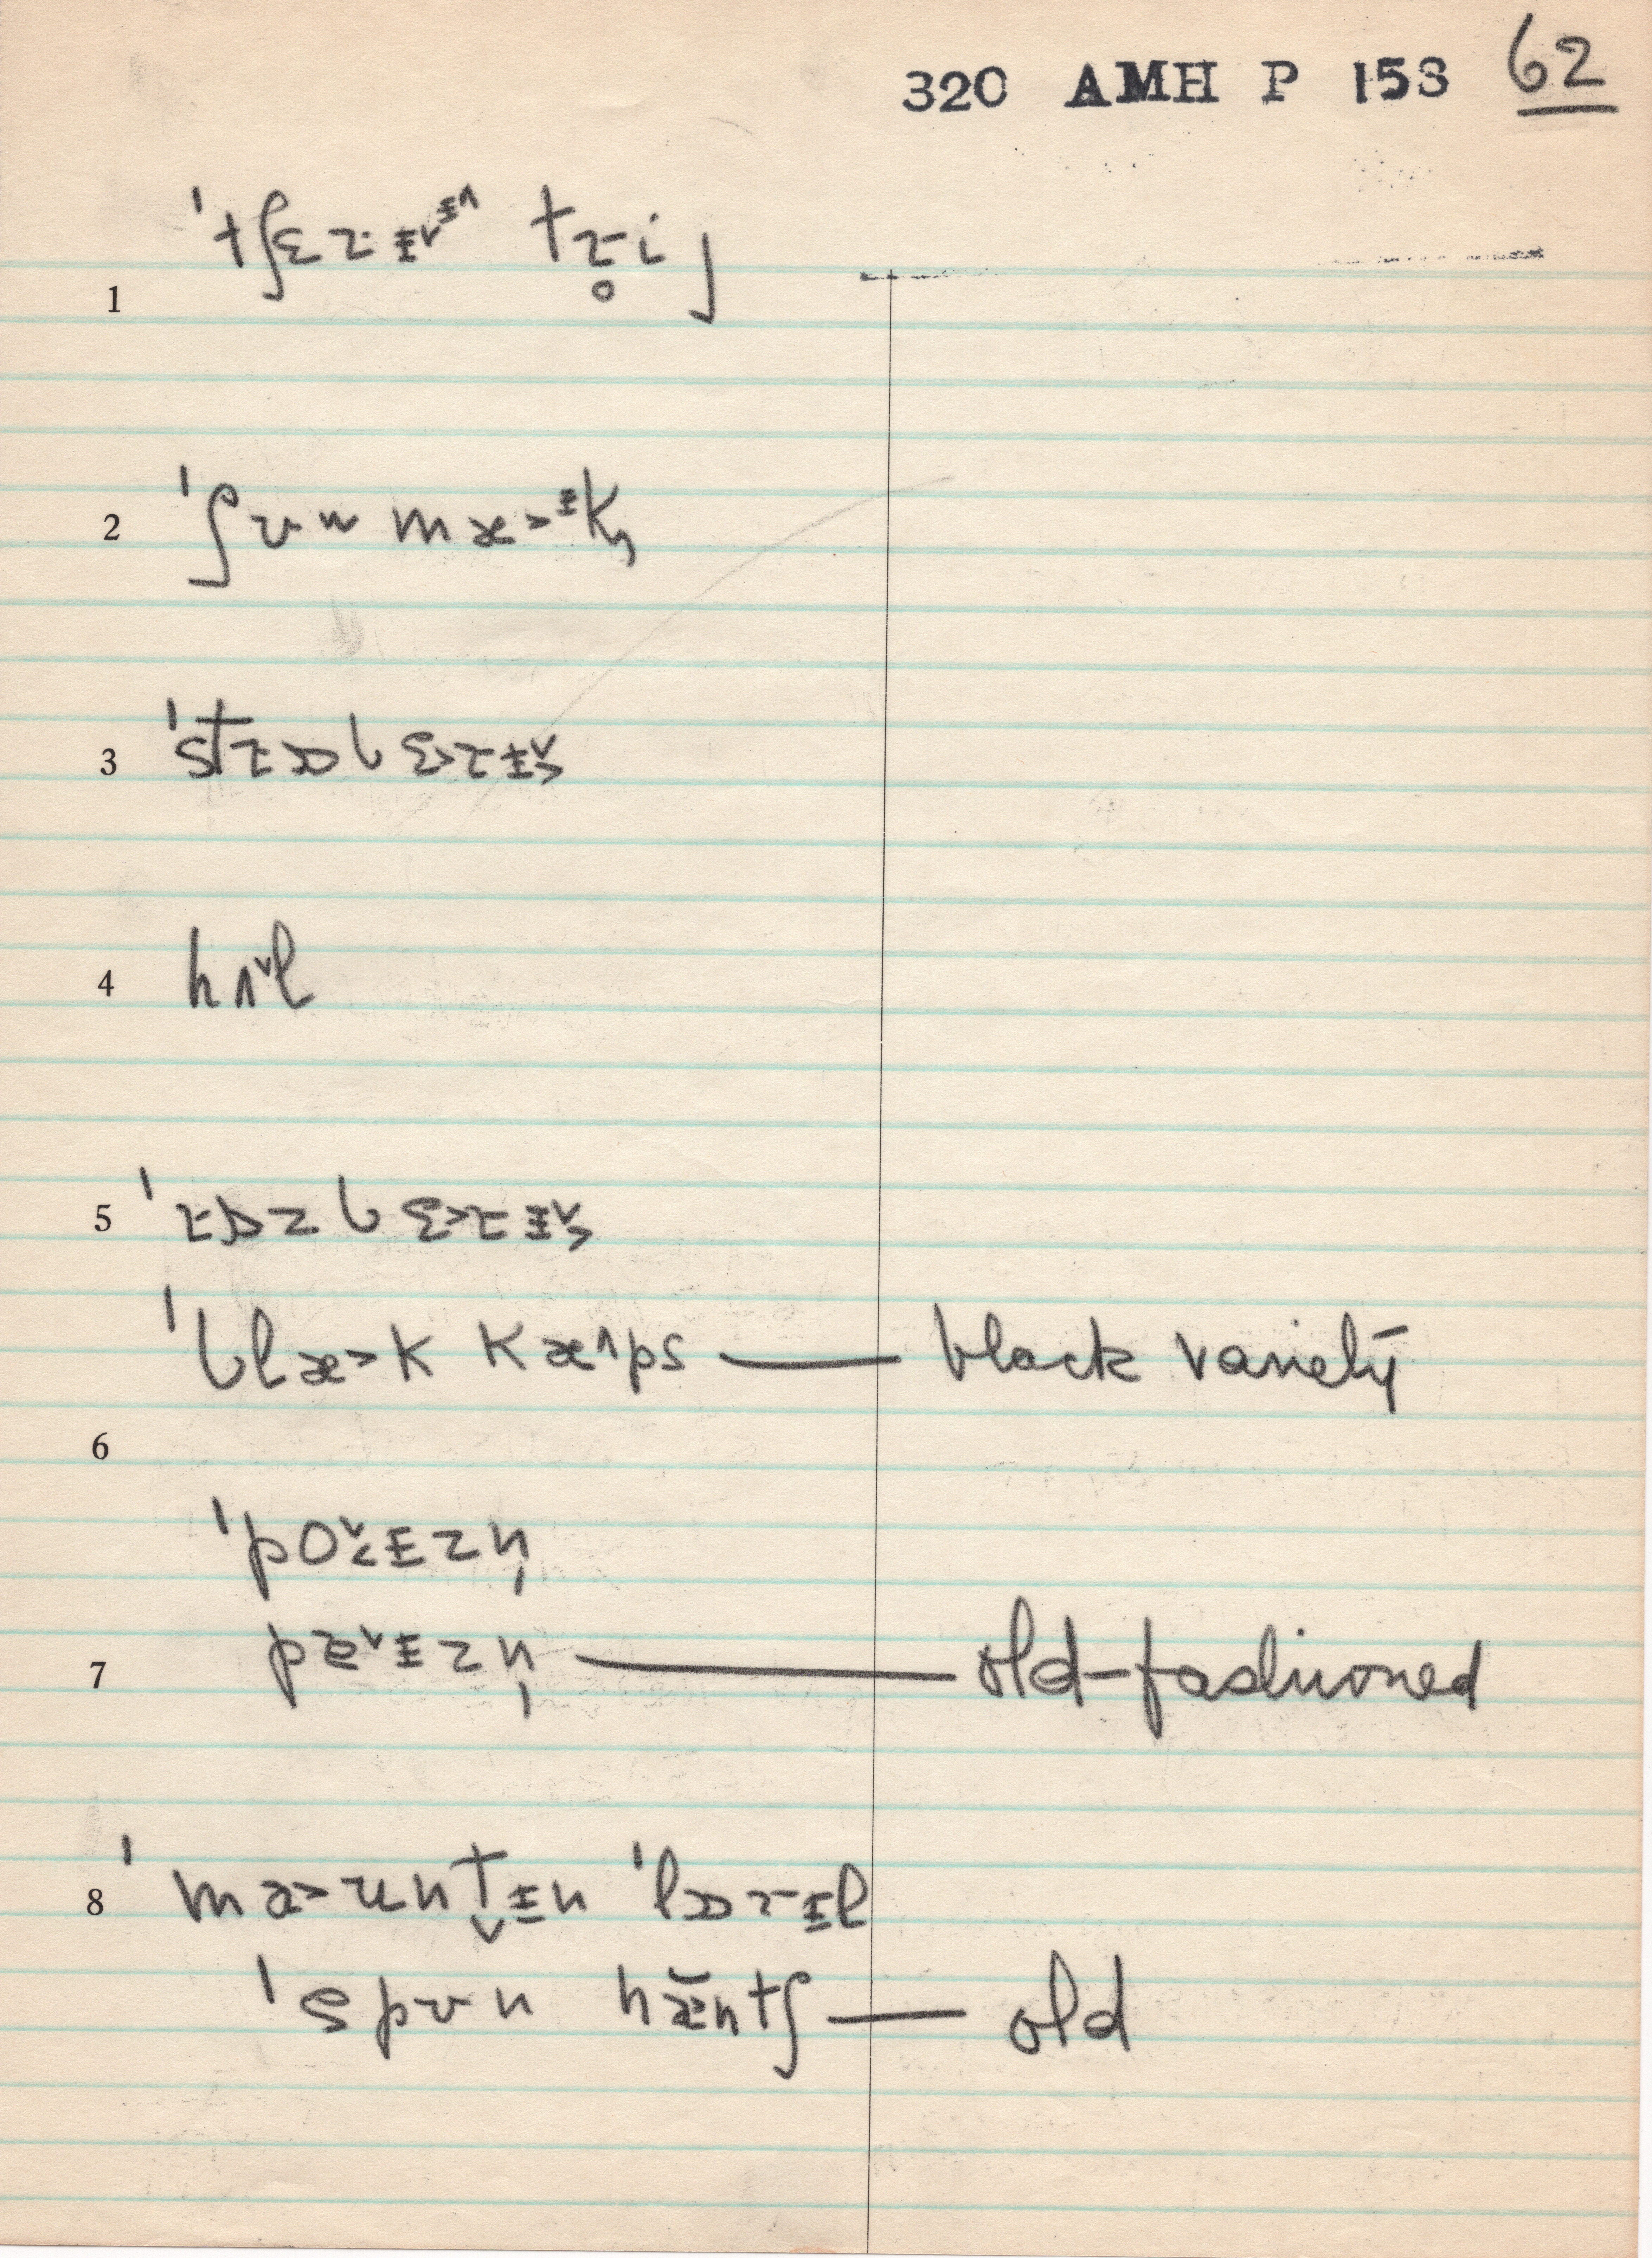 320 AMH P 153 62
1 ˈtʃɛɾɨ˅ᶤ˄ tɾ̥iʃ
2 ˈʃumæ˃ᶤk
3 ˈstɾɔbɛ˃ɾɨ˅˃
4 hʌ˅l
5 ˈɾɒzbɛ˃ɾɨ˅˃
ˈblæ˃k kæ˄ps — black variety
6
ˈpɔ˅˂ɨzn̩
7 pɚ˅ɨzn̩ — old-fashioned
8 ˈma˃ʊnt̬ɨn ˈlɔɾɨl
ˈspun hæ̆ntʃ — old